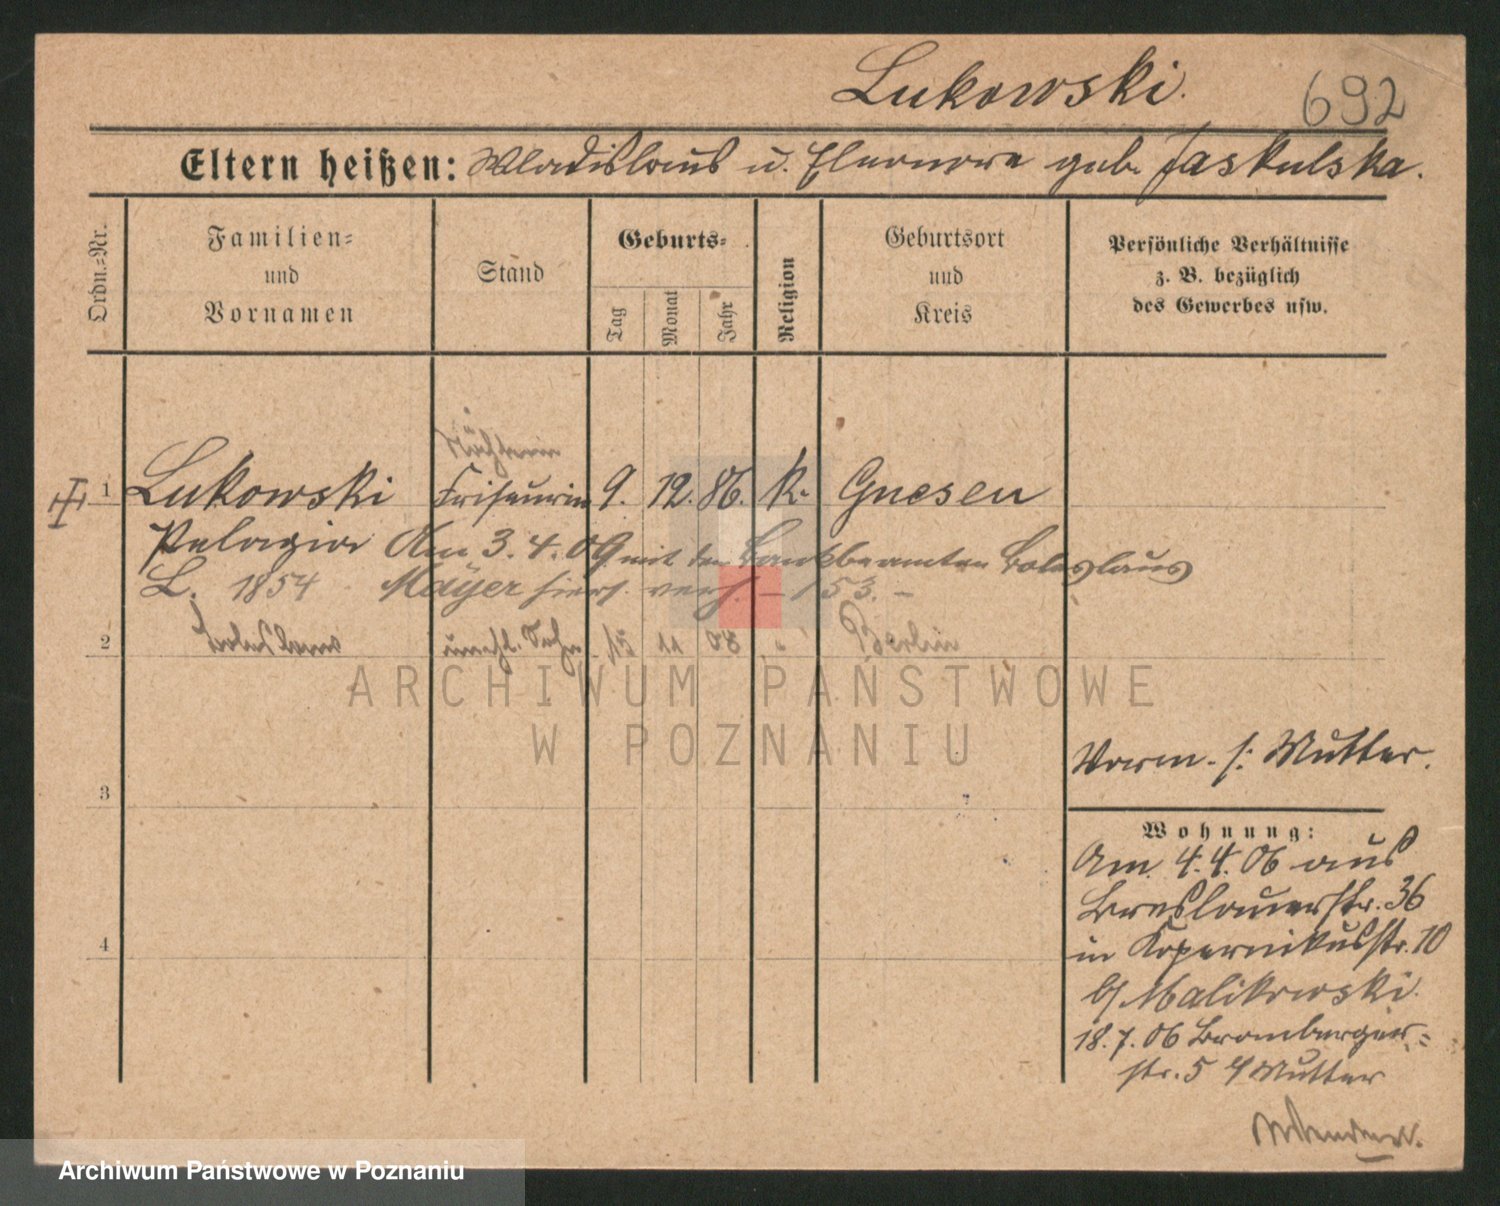 Lukowski.
692
Eltern heißen: Wladislaus u. Eleonore geb. Jaskulska.
Ordn.-Nr.
Familien- und Vornamen
Stand
Geburts-
Tag
Monat
Jahr
Religion
Geburtsort und Kreis
Persönliche Verhältnisse
z. B. bezüglich
des Gewerbes usw.
1 Lukowski Friseurin 9. 12. 86. k. Gnesen
Pelagia Am 3.4.09 mit dem Bankbeamten Boleslaus
L. 1854 Mayer hiers. verh. – 153. –
2 unehl. Sohn 15 11 08 " Berlin
3
Vorm. s: Mutter.
Wohnung:
Am 4.4.06 aus
Breslauerstr. 36
in Kopernikusstr. 10
b/ Malikowski.
18.7.06 Bromberger-
str. 5 b/ Mutter
4
ARCHIWUM PAŃSTWOWE
W POZNANIU
Archiwum Państwowe w Poznaniu